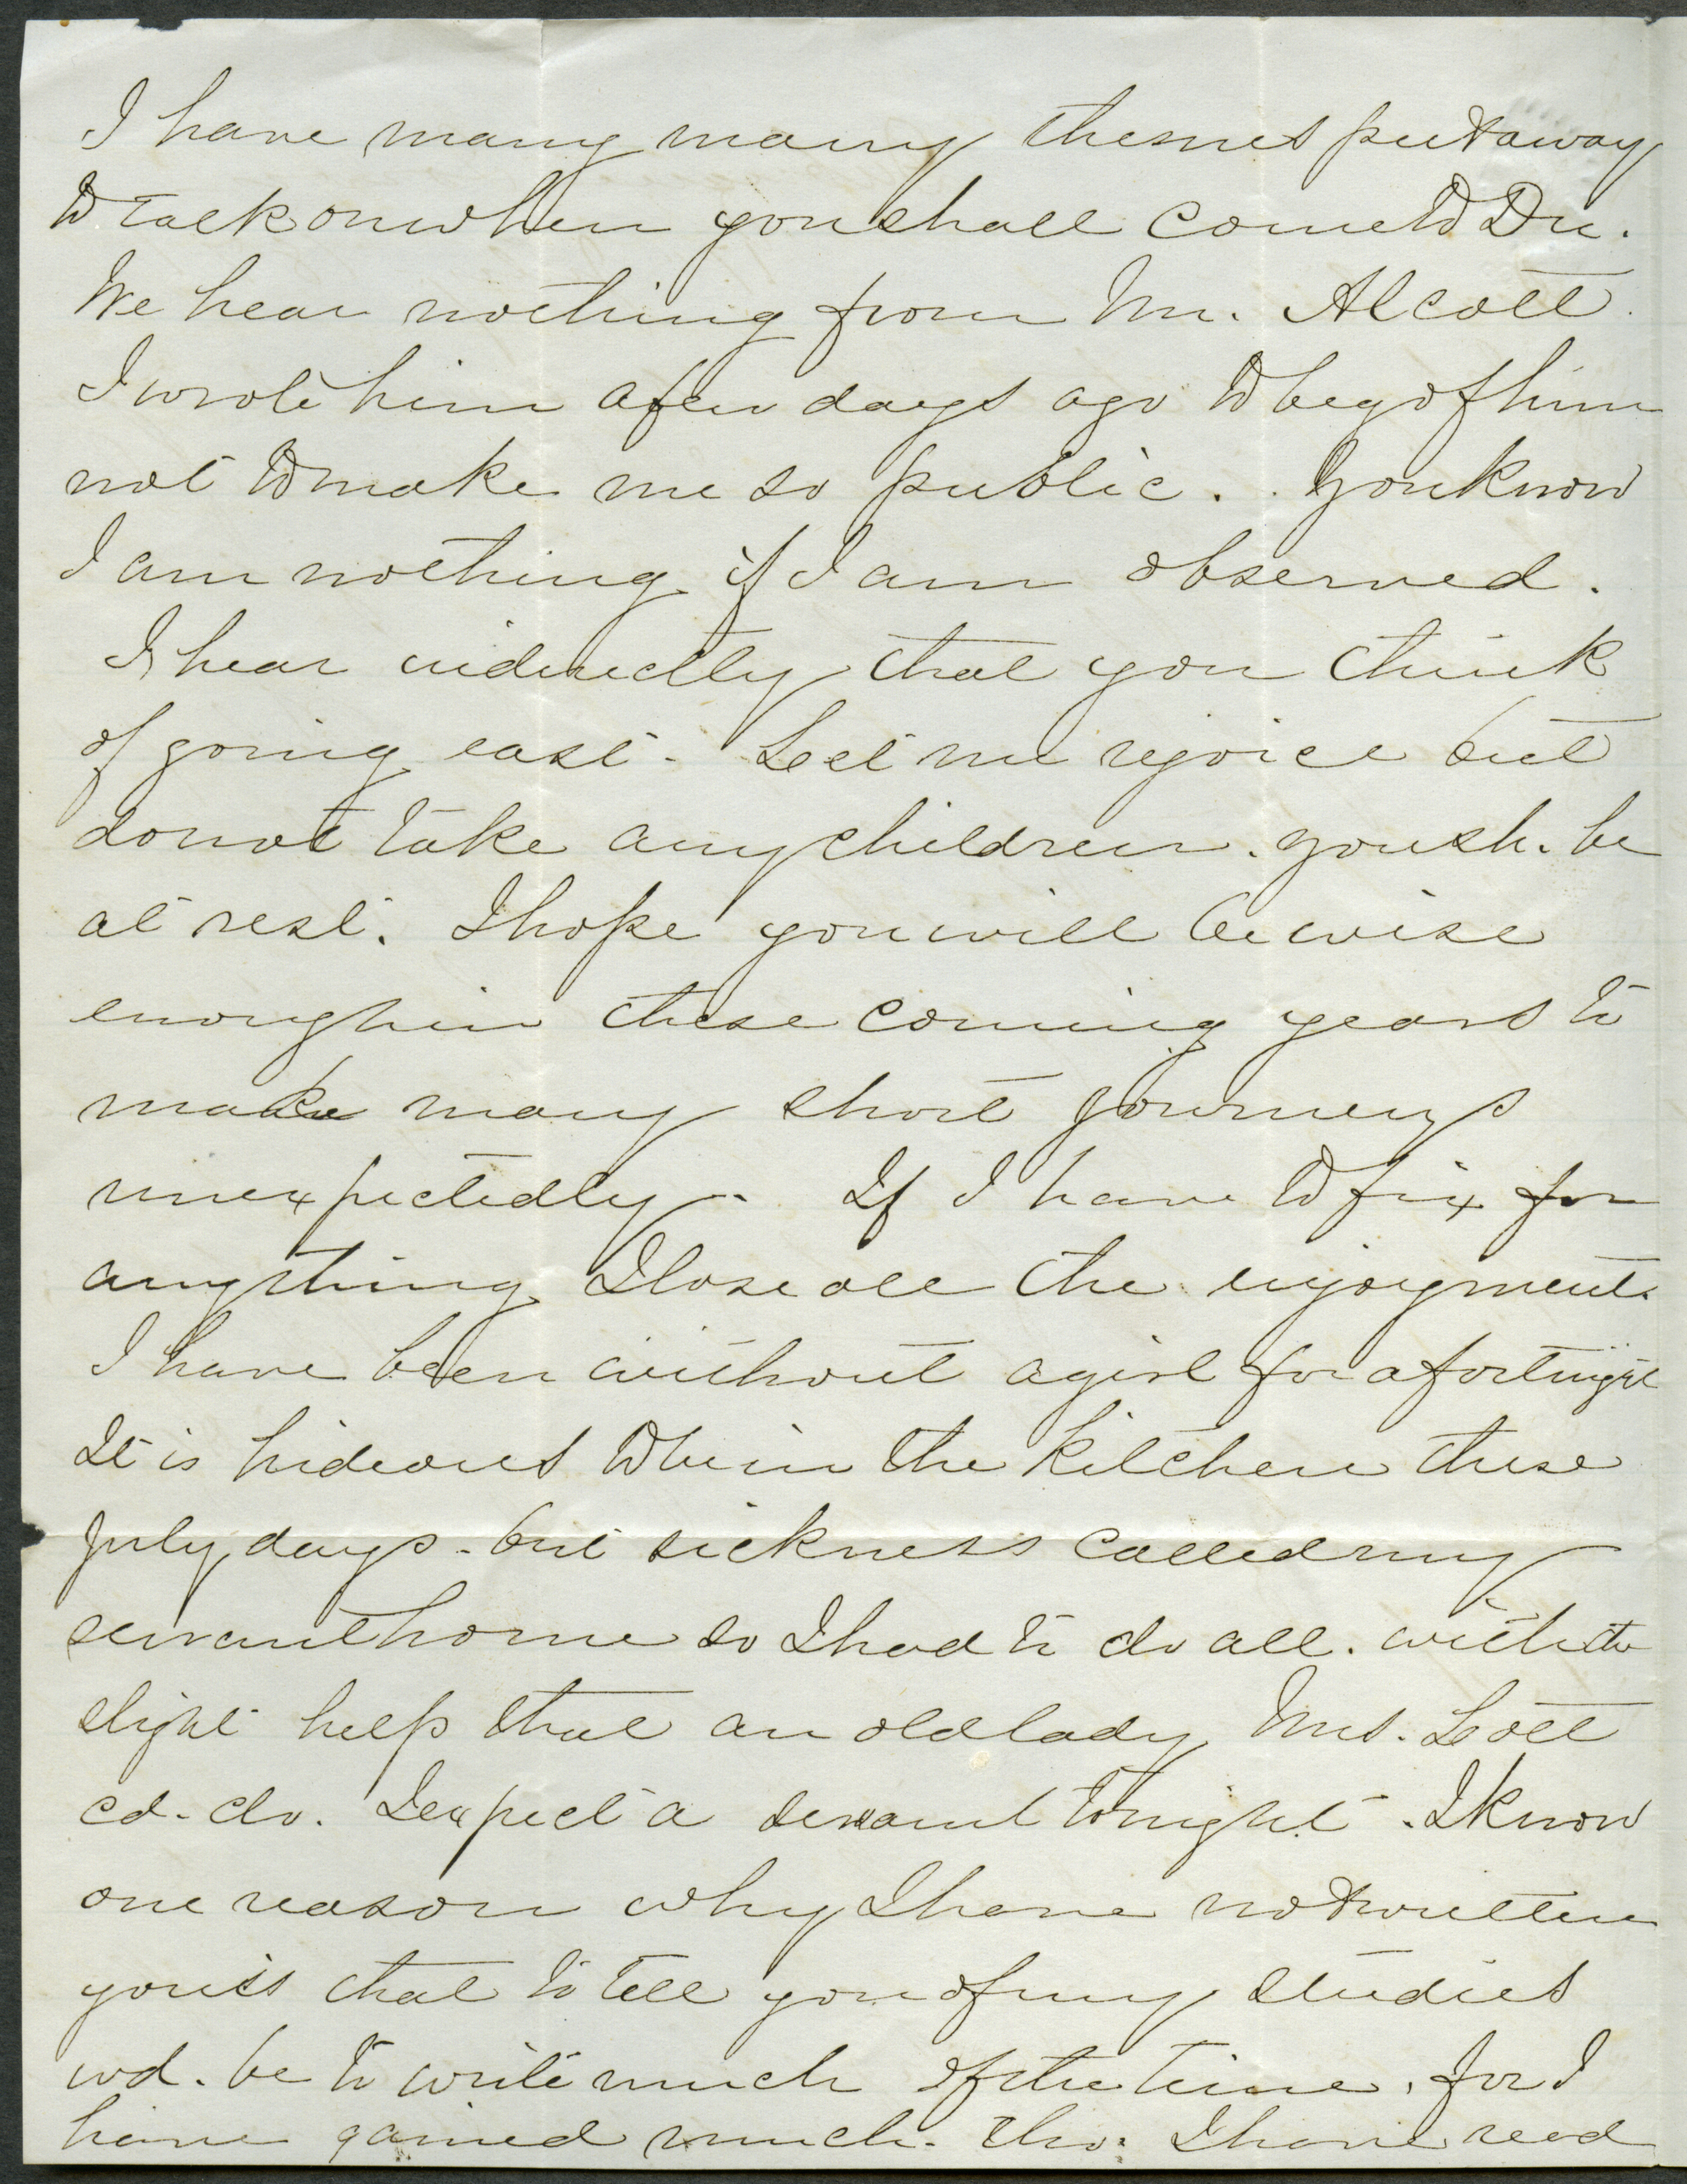 I have many many themes put away
to talk on when you shall come to Du.
We hear nothing from Mr. Alcott.
I wrote him a few days ago to beg of him
not to make me so public. You know
I am nothing if I am observed.
I hear indirectly that you think
of going east. Let me rejoice but
do not take any children. you sh. be
at rest. I hope you will be wise
enough in these coming years to
make many short journeys
unexpectedly. If I have to fix for
anything I lose all the enjoyment.
I have been without a girl for a fortnight
It is hideous to be in the kitchen these
July days. but sickness called my
servant home so I had to do all. with the
slight help that an old lady Mrs. Lott
cd. do. I expect a servant tonight. I know
one reason why I have not written
you is that to tell you of my studies
wd. be to write much of the time, for I
have gained much. tho. I have read